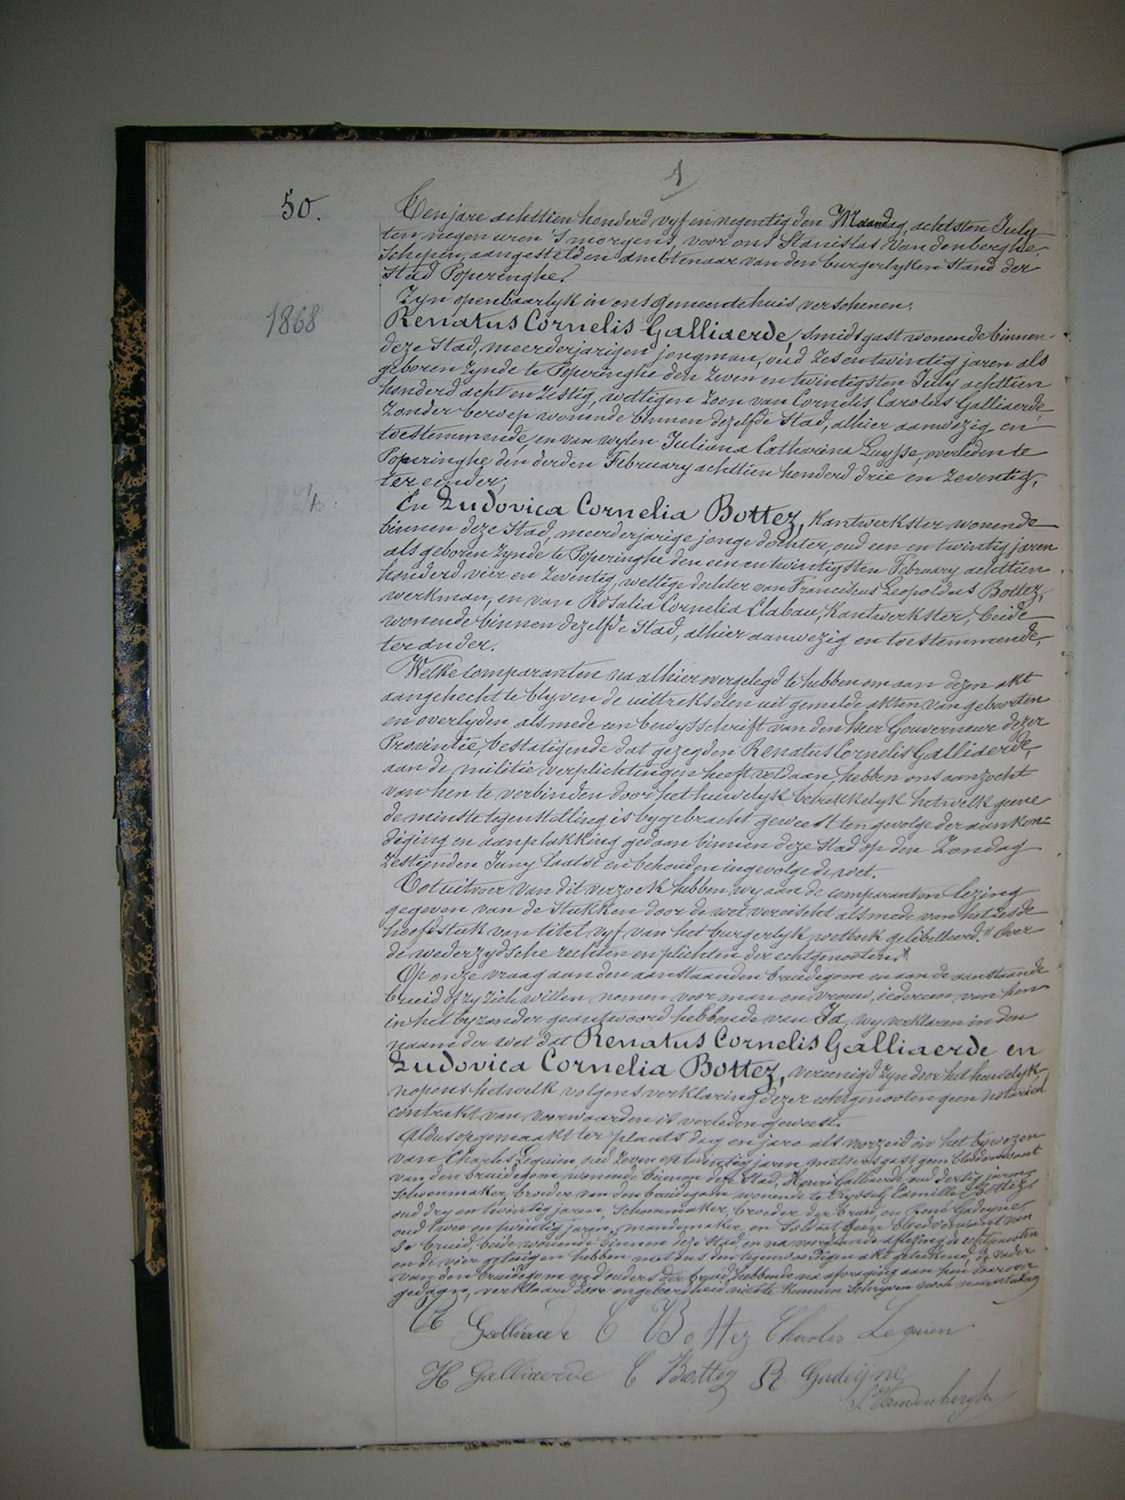 1
50.
Ten jare achttien honderd vyf en negentig den Maandag, achtsten July
ten negen uren 's morgens, voor ons Stanislas Vandenberghe,
Schepen, aangestelden ambtenaar van den burgerlyken stand der
Stad Poperinghe.
Zyn openbaarlyk in ons gemeentehuis verschenen:
1868
Renatus Cornelis Galliaerde, smidsgast wonende binnen
deze stad, meerderjarigen jongman, oud zes en twintig jaren als
geboren zynde te Poperinghe den zeven en twintigsten July achttien
honderd acht en zestig, wettigen zoon van Cornelis Carolus Galliaerde
zonder beroep wonende binnen dezelfde Stad, alhier aanwezig en
toestemmende, en van wylen Juliana Catharina Luysse, overleden te
Poperinghe den derden February achttien honderd drie en zeventig,
ter eender;
En Ludovica Cornelia Bottez, kantwerkster wonende
binnen deze Stad, meerderjarige jonge dochter, oud een en twintig jaren
als geboren zynde te Poperinghe den een en twintigsten February achttien
honderd vier en zeventig, wettige dochter van Franciscus Leopoldus Bottez,
werkman, en van Rosalia Cornelia Clabau, kantwerkster, beide
wonende binnen dezelfde Stad, alhier aanwezig en toestemmende,
ter ander.
Welke comparanten na alhier overgelegd te hebben om aan dezen akt
aangehecht te blyven de uittrekselen uit gemelde akten van geboorten
en overlyden, alsmede een bewysschrift van den Heer Gouverneur dezer
Provintie, bestatigende dat gezegden Renatus Cornelis Galliaerde,
aan de militie verplichtingen heeft voldaan, hebben ons aanzocht
van hen te verbinden door het huwelyk betrekkelyk hetwelk geene
de minste tegenstelling is bygebracht geweest ten gevolge der aankon-
diging en aanplakking gedaan binnen deze Stad op den Zondag
zestienden Juny laatst en behouden ingevolge de wet.
Tot uitvoer van dit verzoek hebben wy aan de comparanten lezing
gegeven van de stukken door de wet vereischt alsmede van het zesde
hoofdstuk van titel vyf van het burgerlyk wetboek gelibelleerd: "Over
de wederzydsche rechten en plichten der echtgenooten."
Op onze vraag aan den aanstaanden bruidegom en aan de aanstaande
bruid of zy zich willen nemen voor man en vrouw, iedereen van hen
in het byzonder geantwoord hebbende van Ja, wy verklaren in den
naam der wet dat Renatus Cornelis Galliaerde en
Ludovica Cornelia Bottez, vereenigd zyn door het huwelyk,
nopens hetwelk volgens verklaring dezer echtgenooten geen notarieel
contrakt van voorwaarden is verleden geweest.
Aldus opgemaakt ter plaats dag en jare als voorzeid in het bywezen
van Charles Lequien, oud zeven en twintig jaren, geen bloedverwant
van den bruidegom wonende binnen deze Stad, Henri Galliaerde, oud dertig jaren
schoenmaker, broeder van den bruidegom wonende te Ryssel, Camille Bottez
oud dry en twintig jaren, schoenmaker, broeder der bruid, en René Gadeyne
oud twee en twintig jaren, mandemaker, en geen bloedverwant van
de bruid, beide wonende binnen deze Stad, en na voorgaande aflezing de echtgenooten
en de vier getuigen hebben met ons den tegenwoordigen akt geteekend, de vader
van den bruidegom en d'ouders der bruid hebbende na afvraging aan hun daarover
gedaan, verklaard door ongeleerdheid niet te kunnen schryven noch naamteekenen
Galliaerde C Bottez Charles Lequien
H Galliaerde C Bottez R Gadeyne
S. Vandenberghe